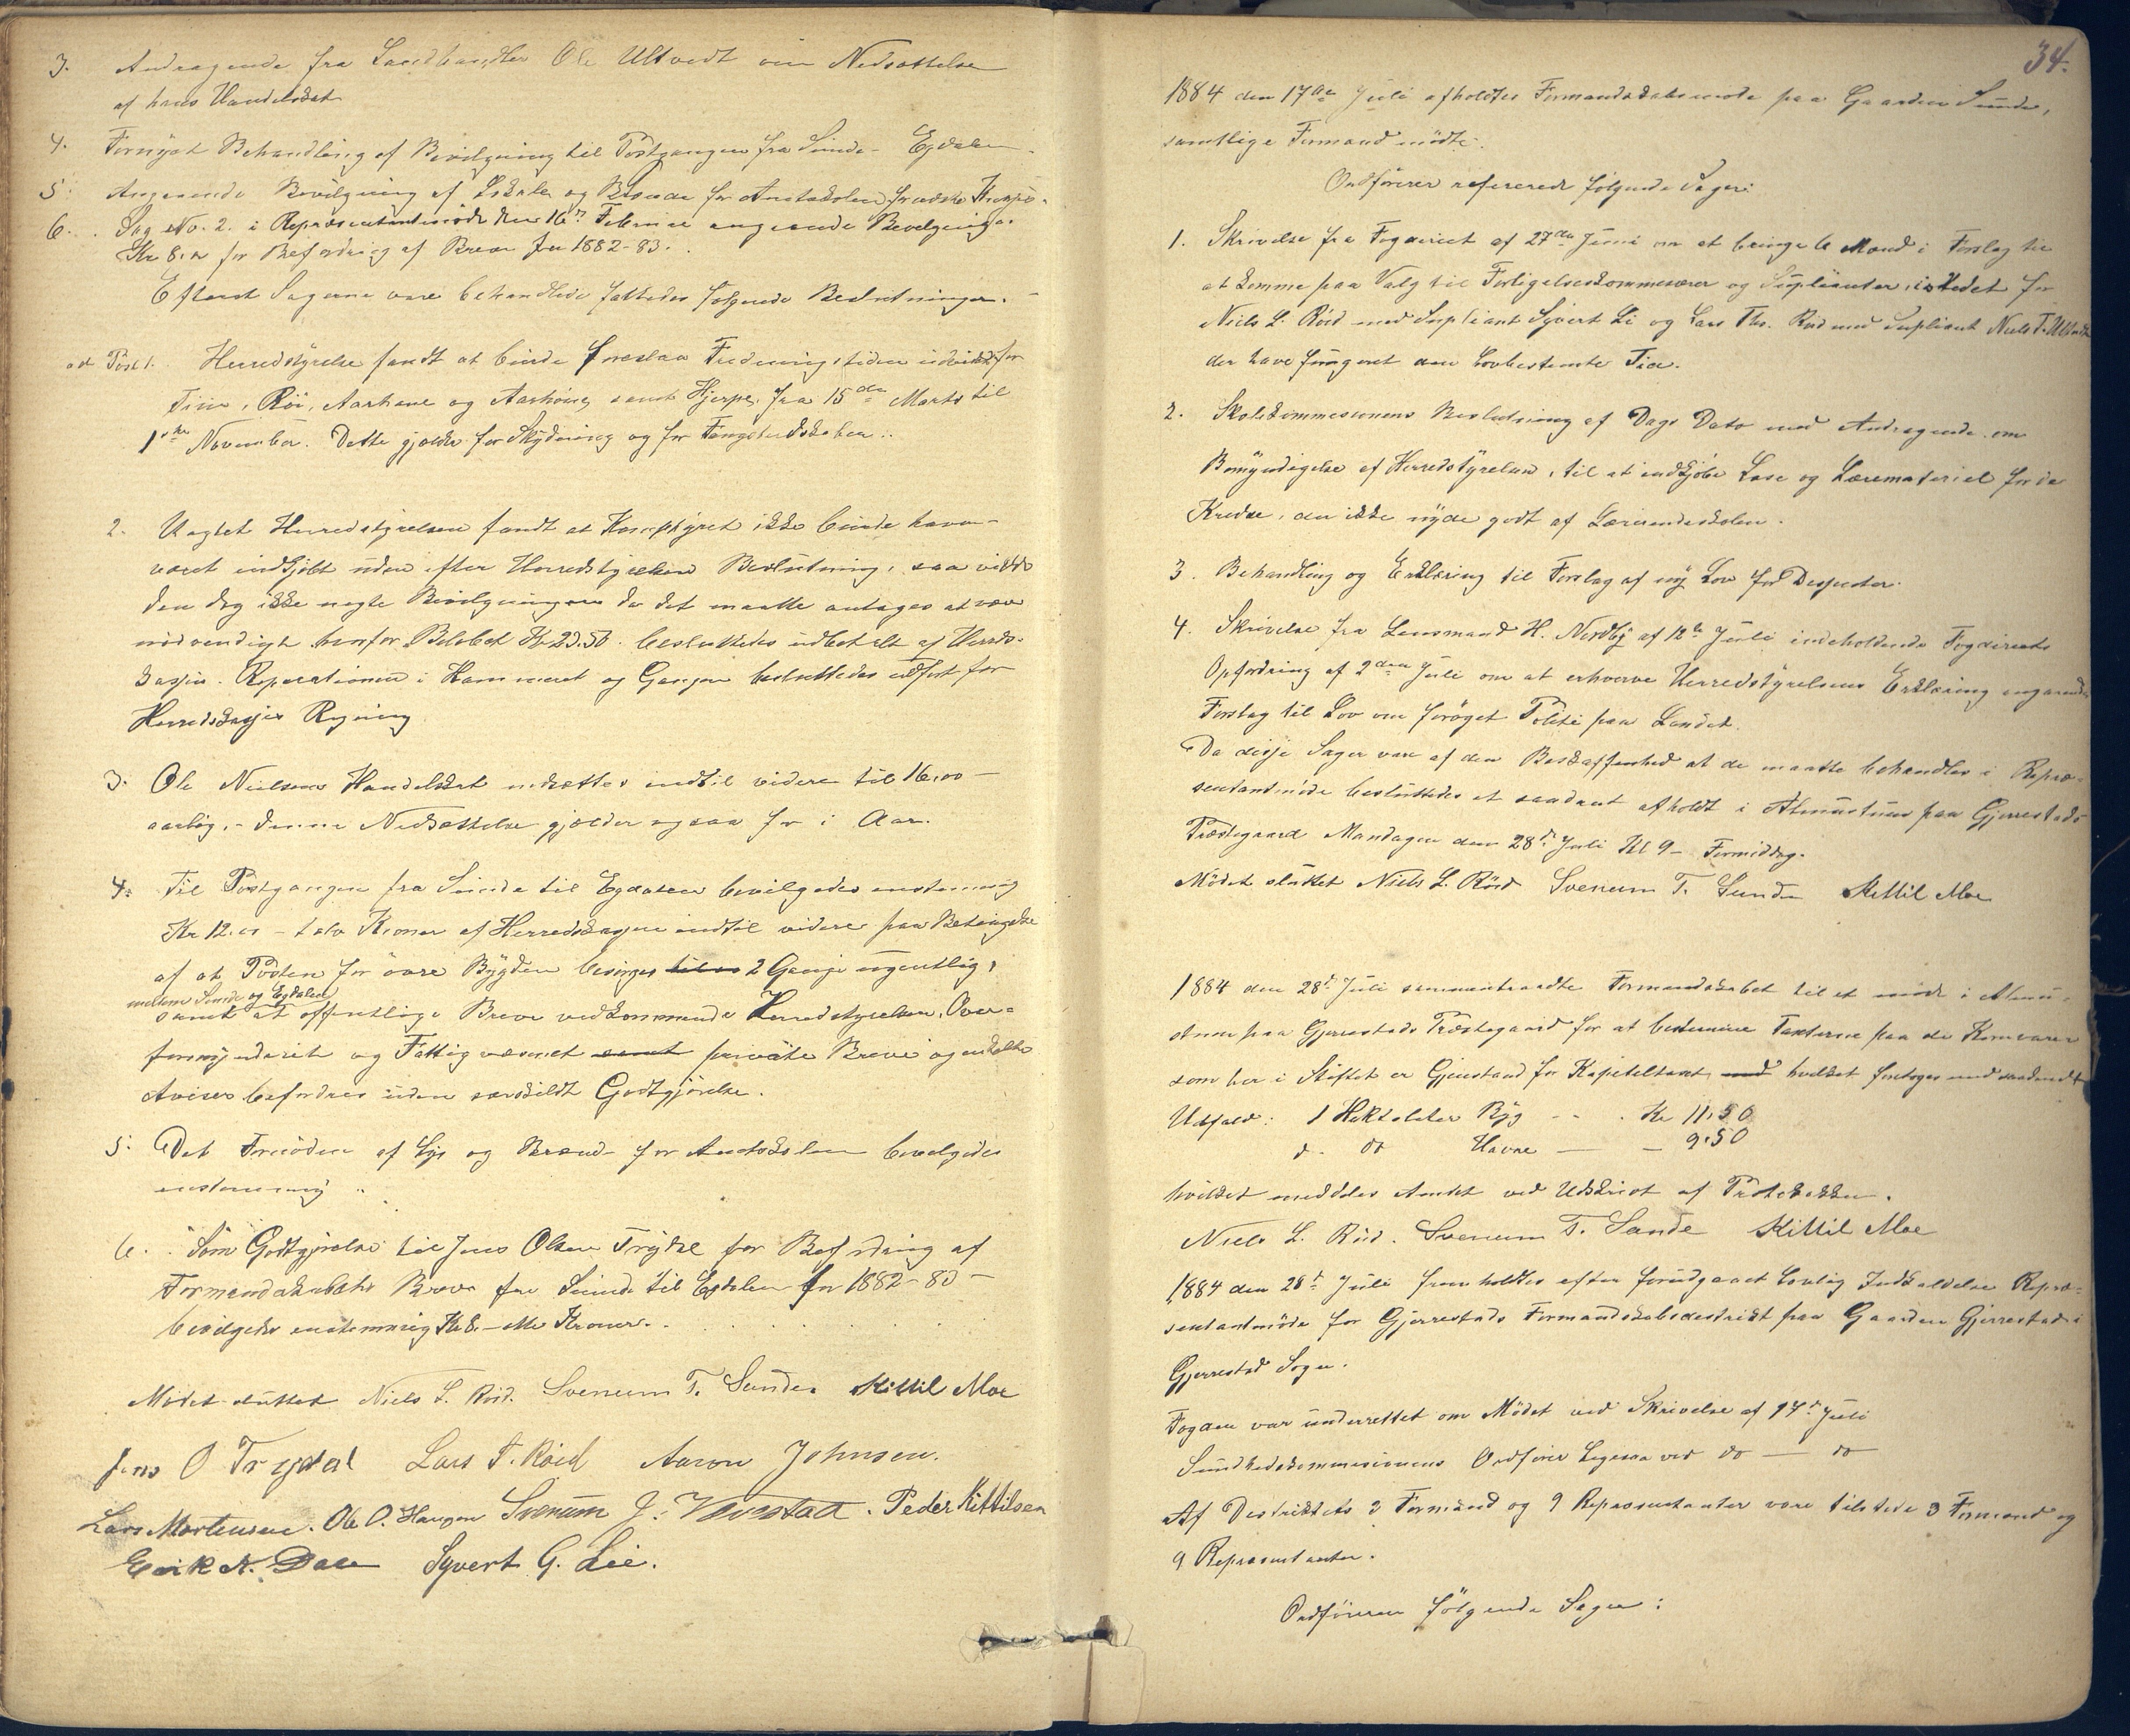 3. Andragende fra Landhandler Ole Ultvedt om Nedsættelse
af hans Handelsskat
4. Fornyet Behandling af Bevilgning til Postgangen fra Sunde - Egdalen
5. Angaaende Bevilgning af Lokale og Brænde for Amtsskolen
6. Sag No. 2. i Repræsentantmøde den 16de Februar angaaende Bevilgning
Kr 8.00 for Befordring af Breve for 1882-83.
Efterat Sagerne vare behandlede fattedes følgende Beslutninger.
ad Post 1. Herredstyrelse fandt at burde foreslaa Fredningstiden indskrænket for
Tiur, Röi, Aarhane og Aarhöne, samt Hjerpe, fra 15de Marts til
1ste November. Dette gjælder for Skydning og for Fangstredskaber..
2. Uagtet Herredstyrelsen fandt at Komfyret ikke burde have
været indkjöbt uden efter Herredstyrelsens Beslutning, saa vilde
den dog ikke negte Bevilgningen da det maatte antages at være
nødvendigt hvorfor Beløbet Kr 23.50. besluttedes udbetalt af Herreds-
kassen. Reparationen i Kammeret og Gangen besluttedes udført for
Herredskassens Regning
3. Ole Nielsens Handelskat nedsættes indtil videre til 16,00 -
aarlig, - denne Nedsættelse gjælder ogsaa for i Aar.
4. Til Postgangen fra Sunde til Egdalen bevilgedes enstemmig
Kr 12.00 - tolv Kroner af Herredskassen indtil videre paa Betingelse
af at Posten for övre Bygden besörges 2 Gange ugentlig,
mellem Sunde og Egdalen
samt at offentlige Breve vedkommende Herredstyrelsen, Over-
formynderiet og Fattigvæsenet samt private Breve og enkelte
Aviser befordres uden særskildt Godtgjörelse.
5. Det Fornödne af Lys og Brænde for Amtsskolen bevilgedes
enstemmig ..
6. Som Godtgjörelse til Jens Olsen Trydal for Befordring af
Formandskabets Breve fra Sunde til Egdalen for 1882-83 -
bevilgedes enstemmig Kr 8. - otte Kroner.
Mödet sluttet Niels L. Röid. Svenum T. Sunde. Kittil Moe
Jens O Trydal Lars T. Röid Aaron Johnsen.
Lars Mortensen. Ole O. Haugen Svenum J. Vevstad. Peder Kittilsen
Eerik N. Dale Syvert G. Lie.
34.
1884 den 17de Juli afholdtes Formandskabsmøde paa Gaarden Sunde,
samtlige Formænd mödte.
Ordförerer refererede følgende Sager:
1. Skrivelse fra Fogderiet af 27de Juni om at bringe 6 Mænd i Forslag til
at komme paa Valg til Forligelseskommesærer og Suplianter, istedet for
Niels L. Röid med Supliant Syvert Li og Lars Ths. Röid med Supliant Niels T. Ultvedt
der have fungeret den lovbestemte Tid.
2. Skolekommesionens Beslutning af Dags Dato med Andragende om
Bemyndigelse af Herredstyrelsen, til at indkjöbe Læse og Læremateriel for de
Kredse, der ikke nyde godt af Lærerindeskolen.
3. Behandling og Erklæring til Forslag af ny Lov for
4. Skrivelse fra Lensmand H. Nordby af 12te Juli indeholdende Fogderiets
Opfordring af 2den Juli om at erhverve Herredstyrelsens Erklæring angaaende
Forslag til Lov om forøget Politi paa Landet.
Da disse Sager vare af den Beskaffenhed at de maatte behandles i Repræ-
sentantmøde besluttedes et saadant afholdt i Almustuen paa Gjerrestads
Præstegaard Mandagen den 28de Juli Kl 9 - Formiddag.
Mödet sluttet Niels L. Röid Svenum T. Sunde Kittil Moe
1884 den 28de Juli sammentraadte Formandskabet til et møde i Almu-
stuen paa Gjerrestads Præstegaard for at bestemme Taxterne paa de Kornvarer
som her i Stiftet er Gjenstand for Kapiteltaxt, hvilket foretoges med saadandt
Udfald: 1 Hektoliter Byg - - . Kr 11,50
d. do Havre — - 9,50
hvilket meddeles Amtet ved Udskrivt af Protokollen.
Niels L. Röid. Svenum T. Sunde Kittil Moe
1884 den 28de Juli fremholdtes efter forudgaaet Lovlig Indkaldelse Repræ-
sentantmöde for Gjerrestads Formandskabsdestrikt paa Gaarden Gjerrestad i
Gjerrestad Sogn.
Fogden var underrettet om Mödet ved Skrivelse af 17de Juli
Sundhedskommesionens Ordfører ligesaa ved do — do
Af Destriktets 3 Formænd og 9 Repræsentanter vare tilstede 3 Formænd og
9 Repræsentanter.
Ordföreren følgende Sager: